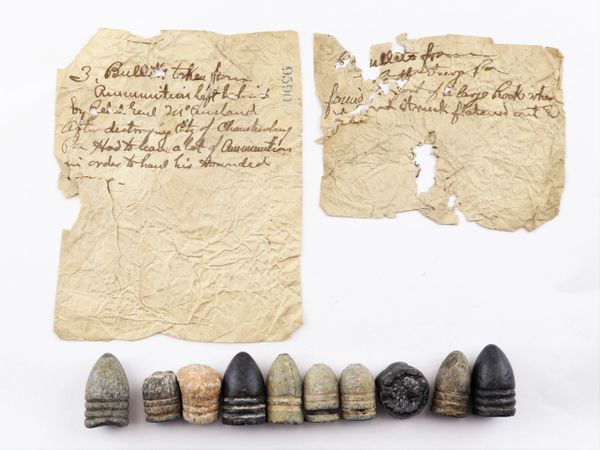 3. Bullets taken from
Ammunition left behind
by Reb. Genl McCausland
After destroying City of Chambersburg
Pa Had to leave a lot of Ammunition
in order to haul his Wounded
away.
9590
Bullets from
Pa
found of a large Rock where
Struck flatened out